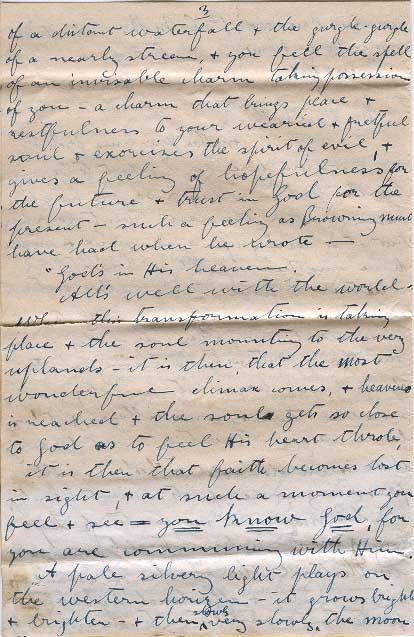 3
of a distant waterfall & the gurgle-gurgle
of a nearby stream & you feel the spell
of an invisable charm taking possession
of you - a charm that brings peace &
restfulness to your wearied & fretful
soul & exorcises the spirit of evil, &
gives a feeling of hopefulness for
the future & trust in God for the
present - such a feeling as Browning must
have had when he wrote -
"God's in His heaven.
All's well with the world -
When this transformation is taking
place & the soul mounting to the very
uplands - it is then, that the most
wonderful climax comes, & heaven
is reached & the soul gets so close
to God as to feel His heart throb,
it is then that faith becomes lost
in sight, & at such a moment you
feel & see = you know God, for
you are communing with Him.
A pale silvery light plays on
the western horizon - it grows bright
& brighter - & then slowly very slowly, the moon